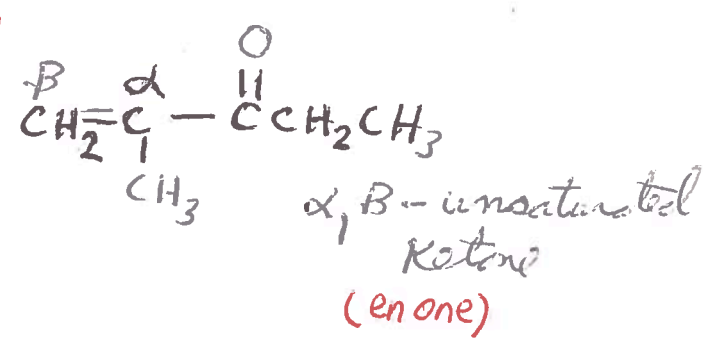 O
β α ||
CH₂=C — C CH₂CH₃
|
CH₃
α, β - unsaturated
Ketone
(enone)